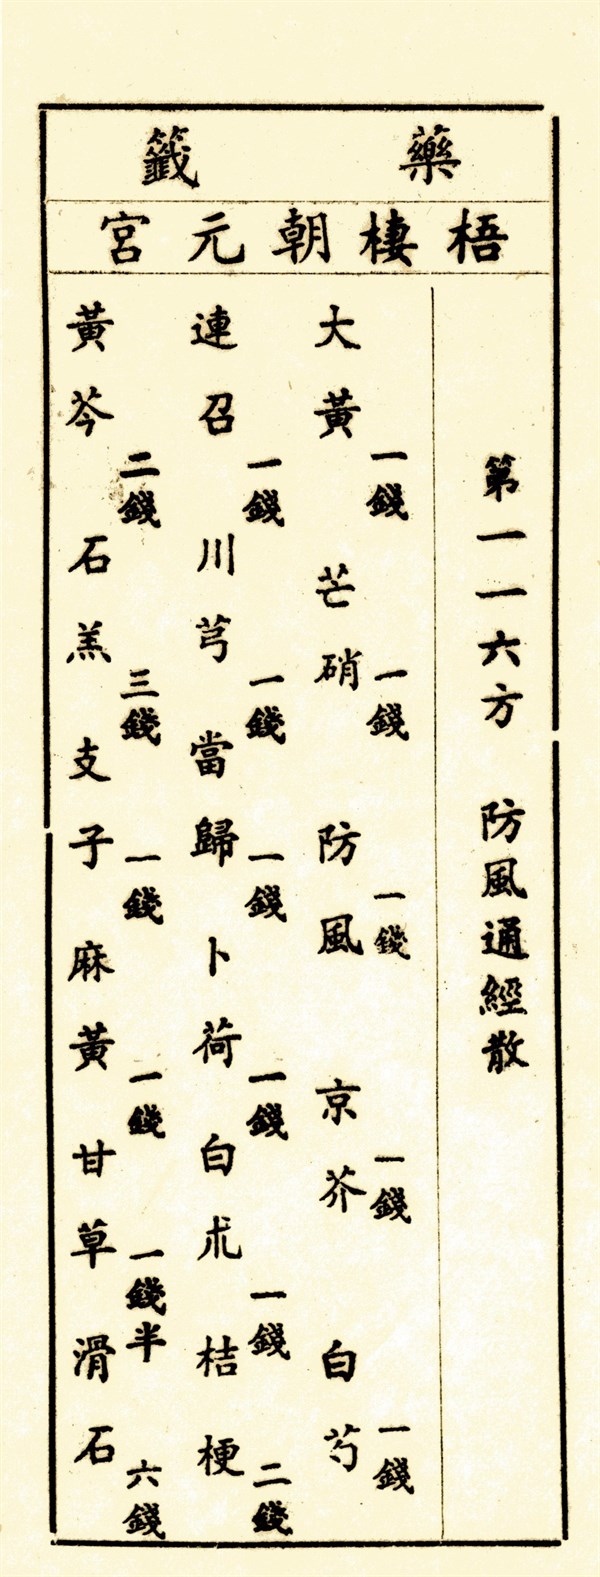 藥籤
梧棲朝元宮
第一一六方 防風通經散
大黃一錢 芒硝一錢 防風一錢 京芥一錢 白芍一錢
連召一錢 川芎一錢 當歸一錢 卜荷一錢 白朮一錢 桔梗二錢
黃芩二錢 石羔三錢 支子一錢 麻黃一錢 甘草一錢半 滑石六錢